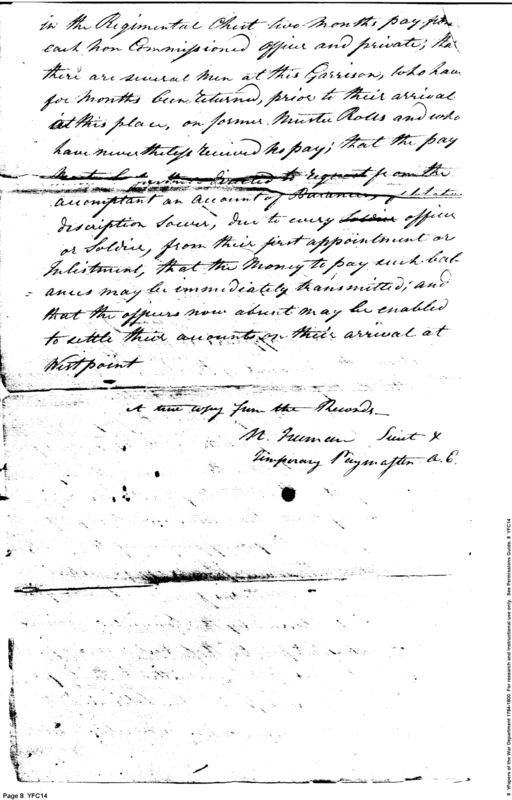 in the Regimental Chest two months pay from
each Non Commissioned officer and private; that
there are several men at this Garrison, who have
for Months been returned, prior to their arrival
at this place, on former Muster Rolls and who
have nevertheless received no pay; that the pay
from the
accomptant an account of Balances, of whatever
discription soever, due to every Soldier officer
or Soldier, from their first appointment or
Inlistment, that the Money to pay such bal
ances may be immediately transmitted; and
that the officers now absent may be enabled
to settle their accounts on their arrival at
Westpoint
A true copy from the Records
N. Freeman Lieut &
Temporary Paymaster A. E.
Page 8 YFC14
8 YPapers of the War Department 1784-1800. For research and instructional use only. See Permissions Guide. 8 YFC14